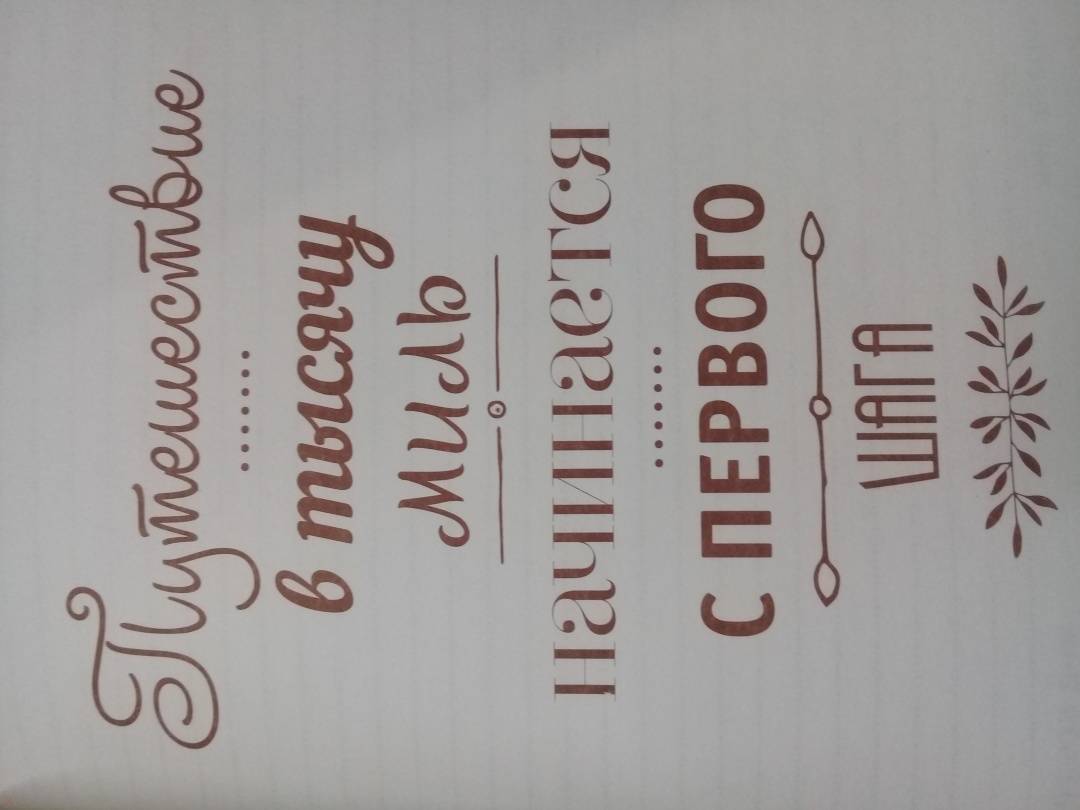 Путешествие
в тысячу
миль
начинается
С ПЕРВОГО
ШАГА